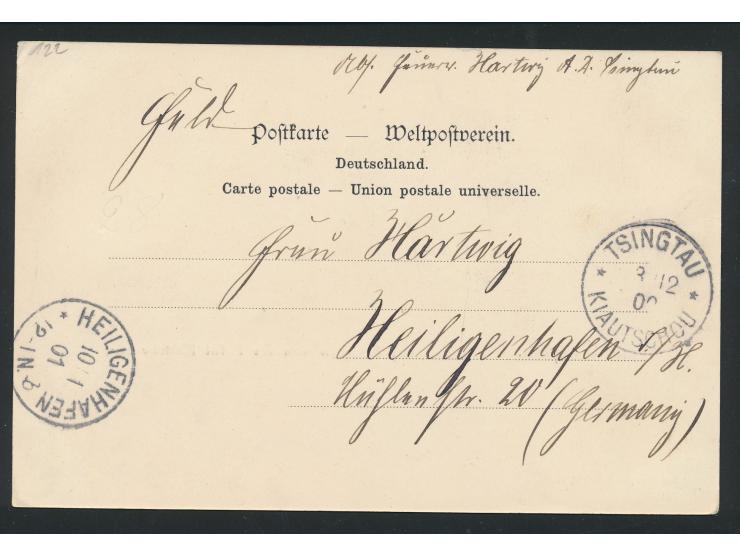 122
Abs. Feuerw. Hartwig A. D. Tsingtau
Feld
Postkarte — Weltpostverein.
Deutschland.
Carte postale — Union postale universelle.
Frau Hartwig
Heiligenhafen i/H.
Mühlenstr. 20 (Germany)
* TSINGTAU *
12
KIAUTSCHOU
* HEILIGENHAFEN
10 1
01
12-1N.